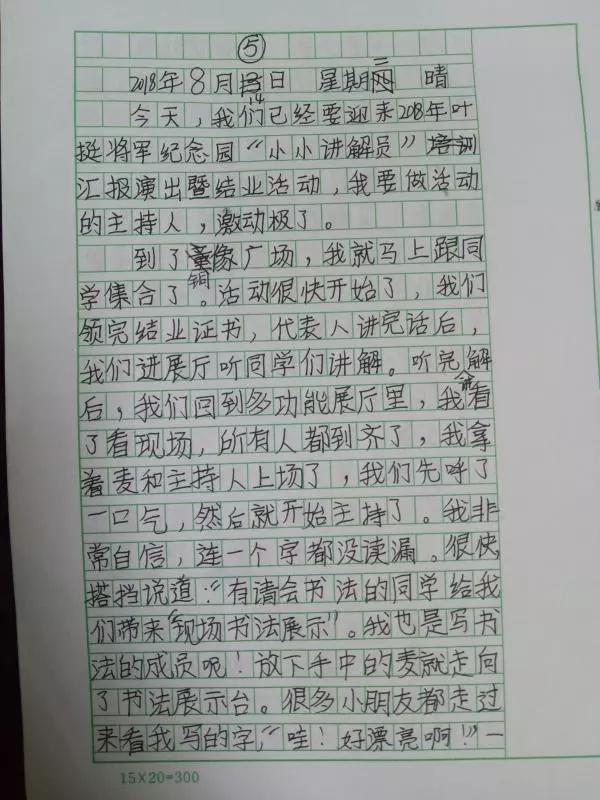 ⑤
2018年8月14日 星期二 晴
今天，我们已经要迎来2018年叶
挺将军纪念园“小小讲解员”培训
汇报演出暨结业活动，我要做活动
的主持人，激动极了。
到了铜像广场，我就马上跟同
学集合了。活动很快开始了，我们
领完结业证书，代表人讲完话后，
我们进展厅听同学们讲解。听完解
后，我们回到多功能展厅里，我看
了看现场，所有人都到齐了，我拿
着麦和主持人上场了，我们先呼了
一口气，然后就开始主持了。我非
常自信，连一个字都没读漏。很快
搭挡说道：“有请会书法的同学给我
们带来“现场书法展示”。我也是写书
法的成员呢！放下手中的麦就走向
了书法展示台。很多小朋友都走过
来看我写的字，“哇！好漂亮啊！”一
15×20=300